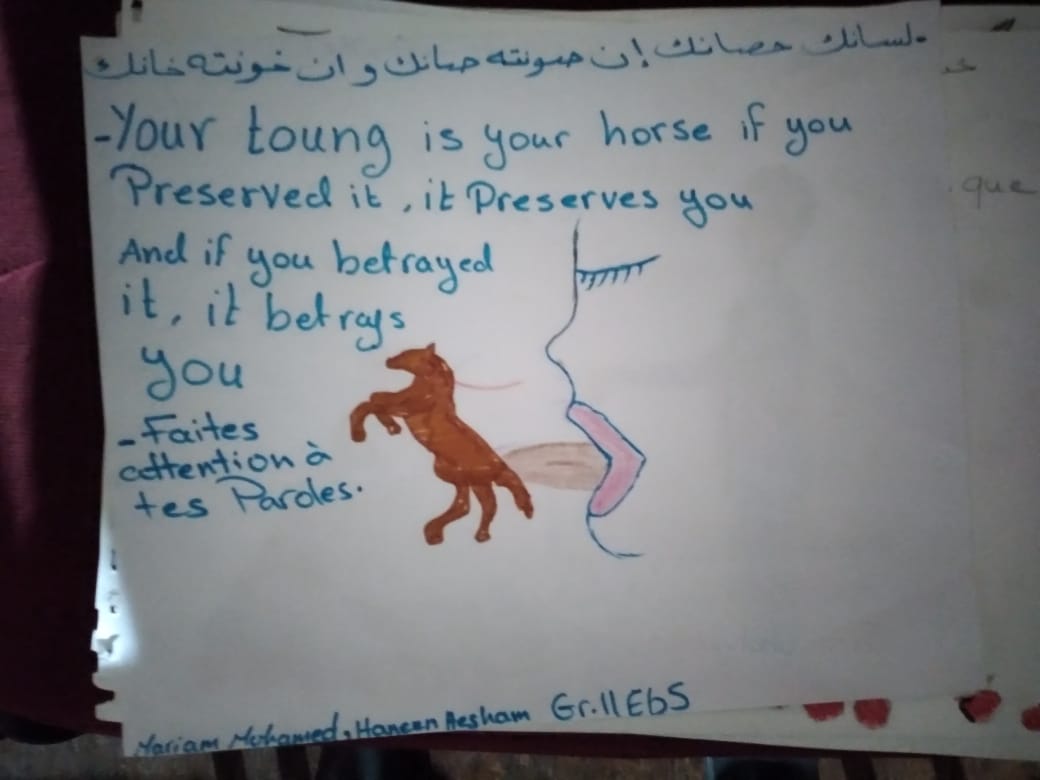 لسانك حصانك إن صونته صانك و ان خونته خانك
-Your toung is your horse if you
Preserved it, it Preserves you
And if you betrayed
it, it betrays
you
- Faites
attention à
tes Paroles.
Mariam Mohamed, Haneen Hesham Gr.11EbS
que